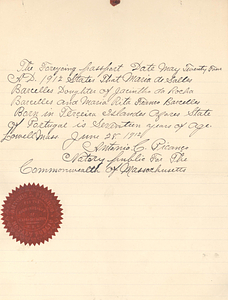 The Forgoing Passport Date May Twenty Nine
A.D. 1912 States That Maria de Salles
Barcellos Daughter of Jacintho da Rocha
Barcellos and Maria Rita Barcellos
Born in Terceira Islands Azores State
of Portugal is Seventeen years of age.
Lowell Mass June 25 1912
Antonio C. Picanço
Notary public For The
Commonwealth of Massachusetts